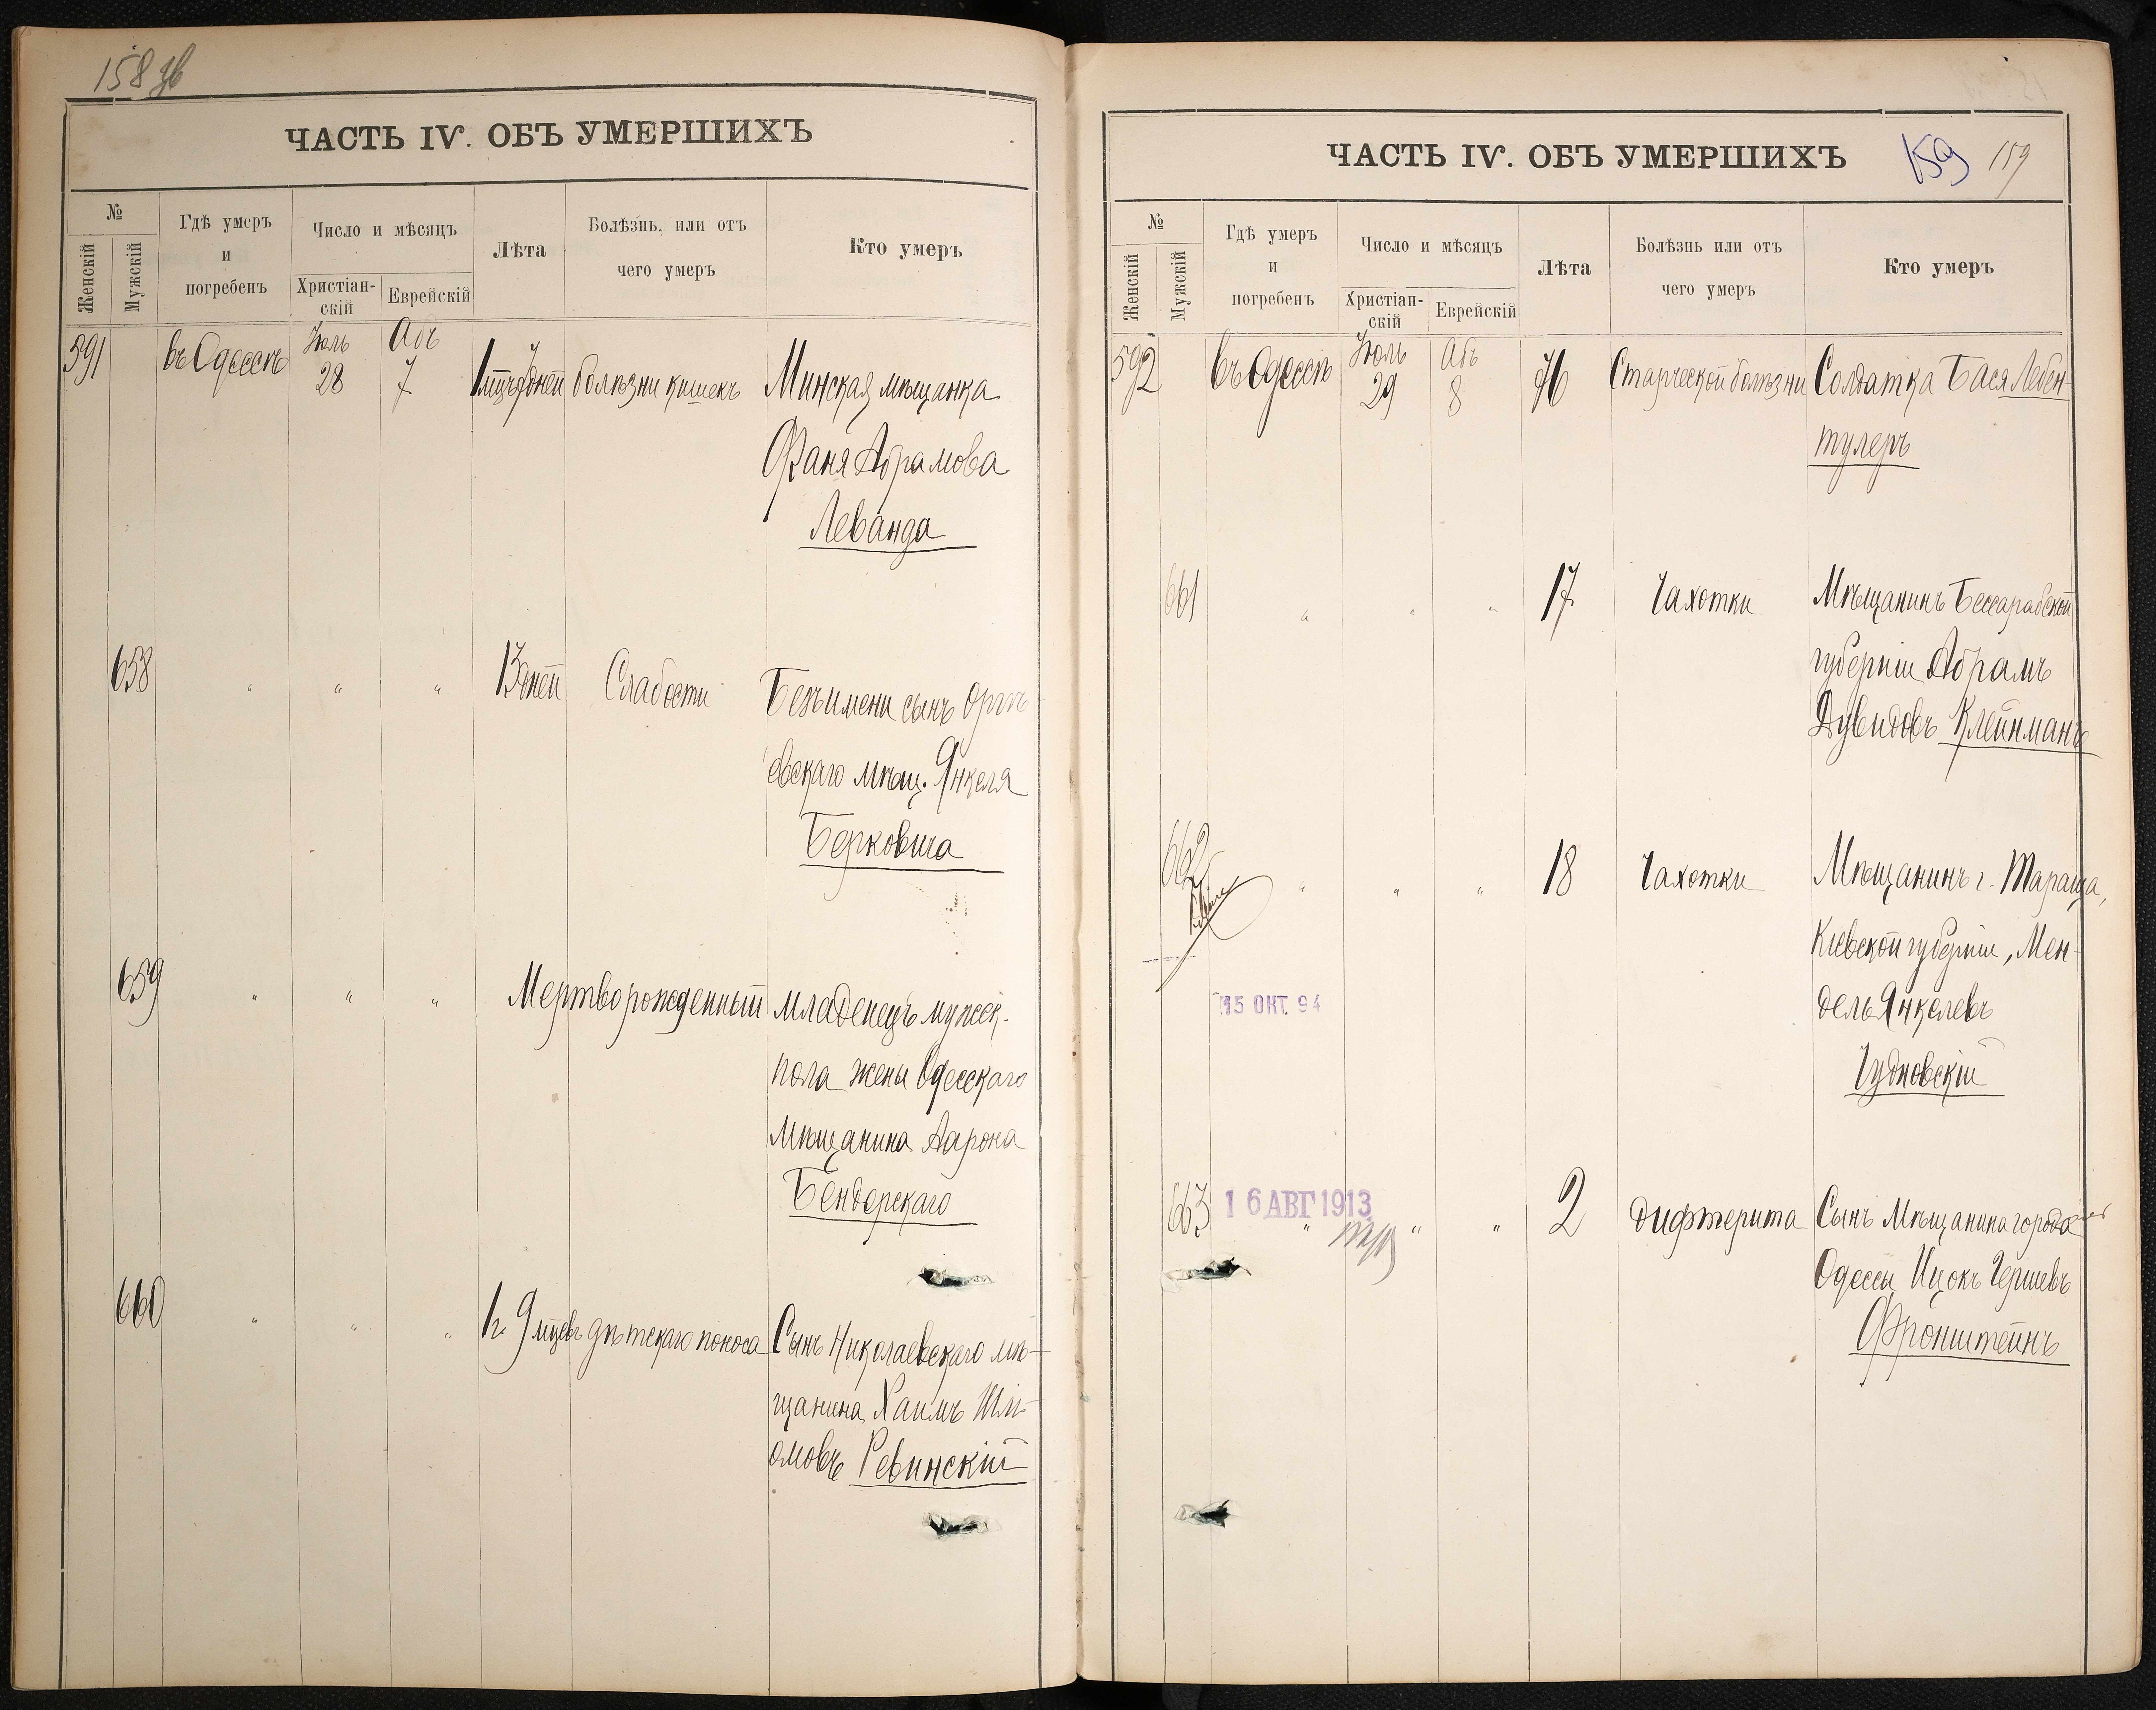 158 об
ЧАСТЬ IV. ОБЪ УМЕРШИХЪ
№
Женскій
Мужскій
Гдѣ умеръ
и
погребенъ
Число и мѣсяцъ
Христіан-
скій
Еврейскій
Лѣта
Болѣзнь, или отъ
чего умеръ
Кто умеръ
591
въ Одессѣ
Іюль
28
Абъ
7
болѣзни кишекъ
Минская мѣщанка
Фаня Абрамова
Леванда
658
" " "
13 дней
Слабости
Безъ имени сынъ Оргѣ-
евскаго мѣщ. Янкеля
Берковича
659
" " "
Мертворожденный
младенецъ мужск.
пола жены Одесскаго
Мѣщанина Аарона
Бендерскаго
660
" " "
1 г. 9 мцевъ
дѣтскаго поноса
Сынъ Николаевскаго мѣ-
щанина Хаимъ Шлі-
омовъ Ревинскій
ЧАСТЬ IV. ОБЪ УМЕРШИХЪ
159
159
№
Женскій
Мужскій
Гдѣ умеръ
и
погребенъ
Число и мѣсяцъ
Христіан-
скій
Еврейскій
Лѣта
Болѣзнь или отъ
чего умеръ
Кто умеръ
592
въ Одессѣ
Іюль
29
Абъ
8
76
Старческой болѣзни
Солдатка Бася Лебен-
тулеръ
661
" " "
17
Чахотки
Мѣщанинъ Бессарабской
губерніи Абрамъ
Дувидовъ Клейнманъ
662
" " "
18
Чахотки
Мѣщанинъ г. Тараща,
Кіевской губерніи, Мен-
дель Янкелевъ
Чудновскій
15 ОКТ. 94
663
16 АВГ 1913
" " "
2
Дифтерита
Сынъ Мѣщанина города
Одессы Ицокъ Гершевъ
Фронштейнъ